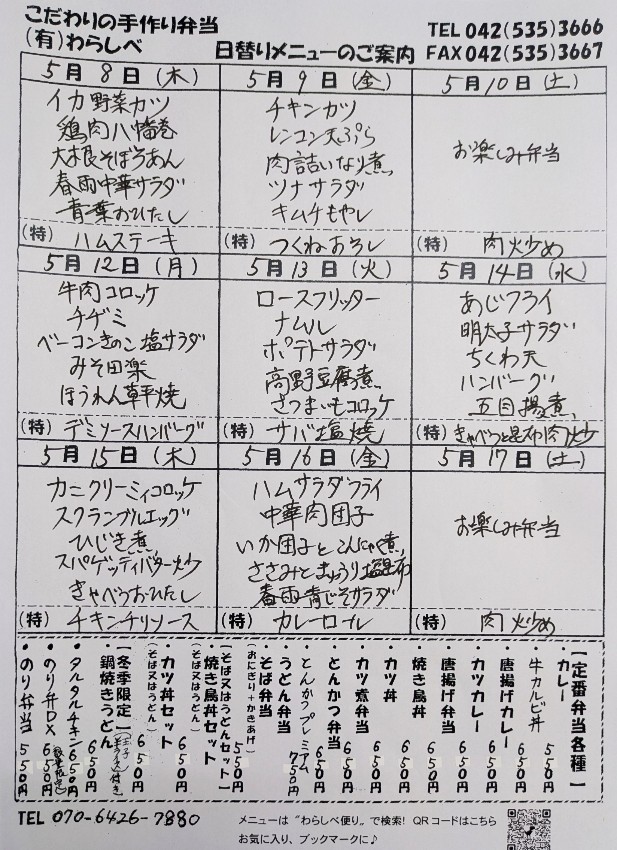 こだわりの手作り弁当
(有)わらしべ
日替りメニューのご案内
TEL 042(535)3666
FAX 042(535)3667
5月8日(木)
イカ野菜カツ
鶏肉八幡巻
大根そぼろあん
春雨中華サラダ
青葉おひたし
(特) ハムステーキ
5月9日(金)
チキンカツ
レンコン天ぷら
肉詰いなり煮
ツナサラダ
キムチもやし
(特) つくねおろし
5月10日(土)
お楽しみ弁当
(特) 肉炒め
5月12日(月)
牛肉コロッケ
チヂミ
ベーコンきのこ塩サラダ
みそ田楽
ほうれん草平焼
(特) デミソースハンバーグ
5月13日(火)
ロースフリッター
ナムル
ポテトサラダ
高野豆腐煮
さつまいもコロッケ
(特) サバ塩焼
5月14日(水)
あじフライ
明太子サラダ
ちくわ天
ハンバーグ
五目揚煮
(特) きゃべつと昆布肉炒め
5月15日(木)
カニクリーミィコロッケ
スクランブルエッグ
ひじき煮
スパゲッティバター炒め
きゃべつおひたし
(特) チキンチリソース
5月16日(金)
ハムサラダフライ
中華肉団子
いか団子とこんにゃく煮
ささみときゅうり塩昆布
春雨青じそサラダ
(特) カレーロール
5月17日(土)
お楽しみ弁当
(特) 肉炒め
【定番弁当各種】
カレー 550円
牛カルビ丼 650円
唐揚げカレー 650円
カツカレー 650円
唐揚げ弁当 650円
焼き鳥丼 650円
カツ丼 650円
カツ煮弁当 650円
とんかつ弁当 650円
とんかつプレミアム 750円
うどん弁当
そば弁当 550円
(おにぎり+かきあげ)
【そば又はうどんセット】
焼き鳥丼セット 650円
(そば又はうどん)
カツ丼セット 650円
(そば又はうどん)
【冬季限定】
鍋焼きうどん 650円
・タルタルチキン 650円
・のり弁DX 650円
・のり弁当 550円
TEL 070-6426-7880
メニューは〝わらしべ便り〟で検索! QRコードはこちら
お気に入り、ブックマークに♪